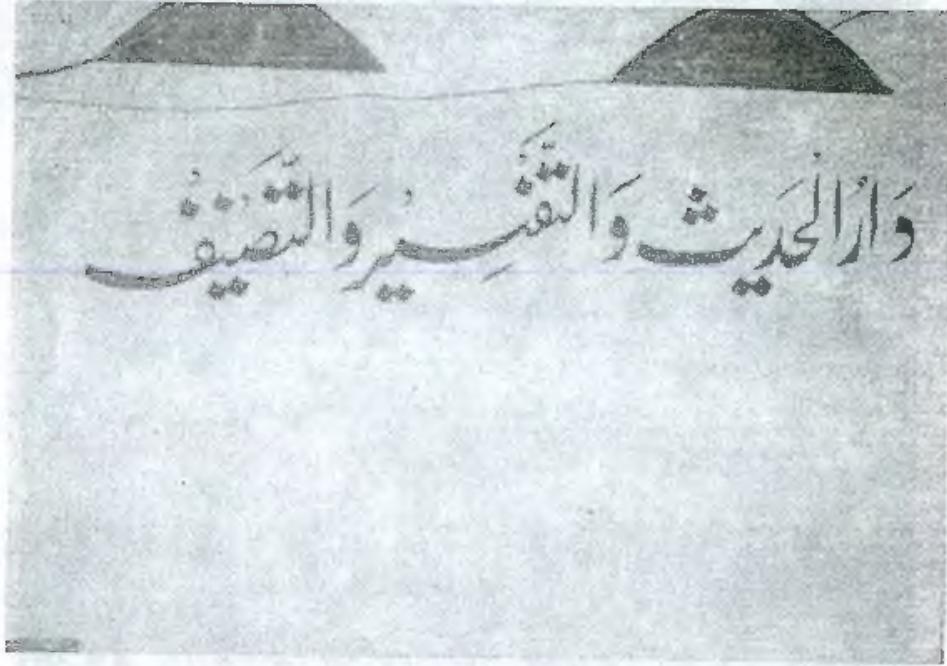 دَارُ الْحَدِيث وَالتَّفْسِيْر وَالتَّصْنِيْف